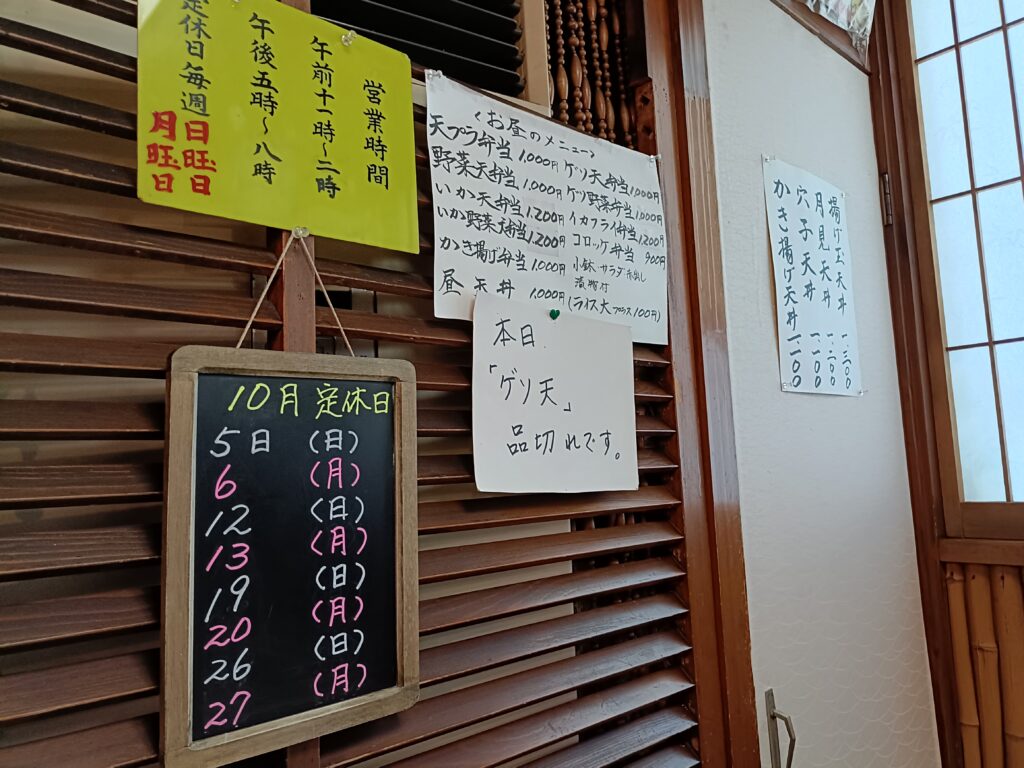 営業時間
午前十一時〜二時
午後五時〜八時
定休日毎週日旺日
月旺日
〈お昼のメニュー〉
天プラ弁当 1,000円 ゲソ天弁当 1,000円
野菜天弁当 1,000円 ゲソ野菜弁当 1,000円
いか天弁当 1,200円 イカフライ弁当 1,200円
いか野菜天弁当 1,200円 コロッケ弁当 900円
かき揚げ弁当 1,000円 小鉢 サラダ 赤出し
漬物付
昼天丼 1,000円 (ライス大プラス100円)
本日
「ゲソ天」
品切れです。
10月 定休日
5日 (日)
6 (月)
12 (日)
13 (月)
19 (日)
20 (月)
26 (日)
27 (月)
揚げ玉天丼 一、三〇〇
月見天丼 一、二〇〇
穴子天丼 一、一〇〇
かき揚げ天丼 一、一〇〇